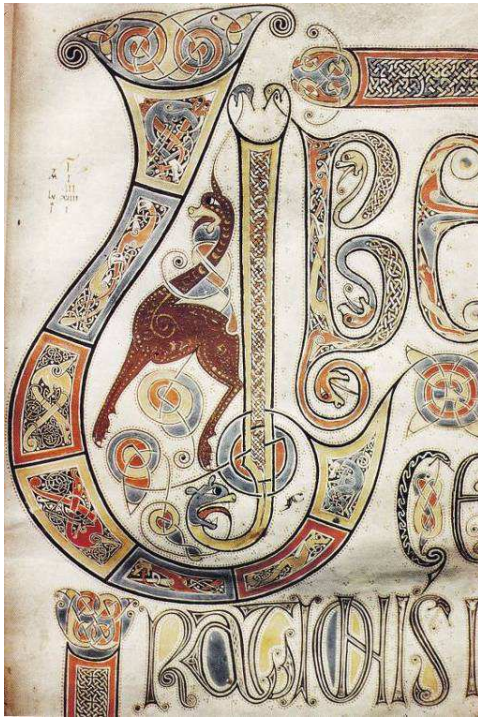 LIBE
GE
RATIONIS I